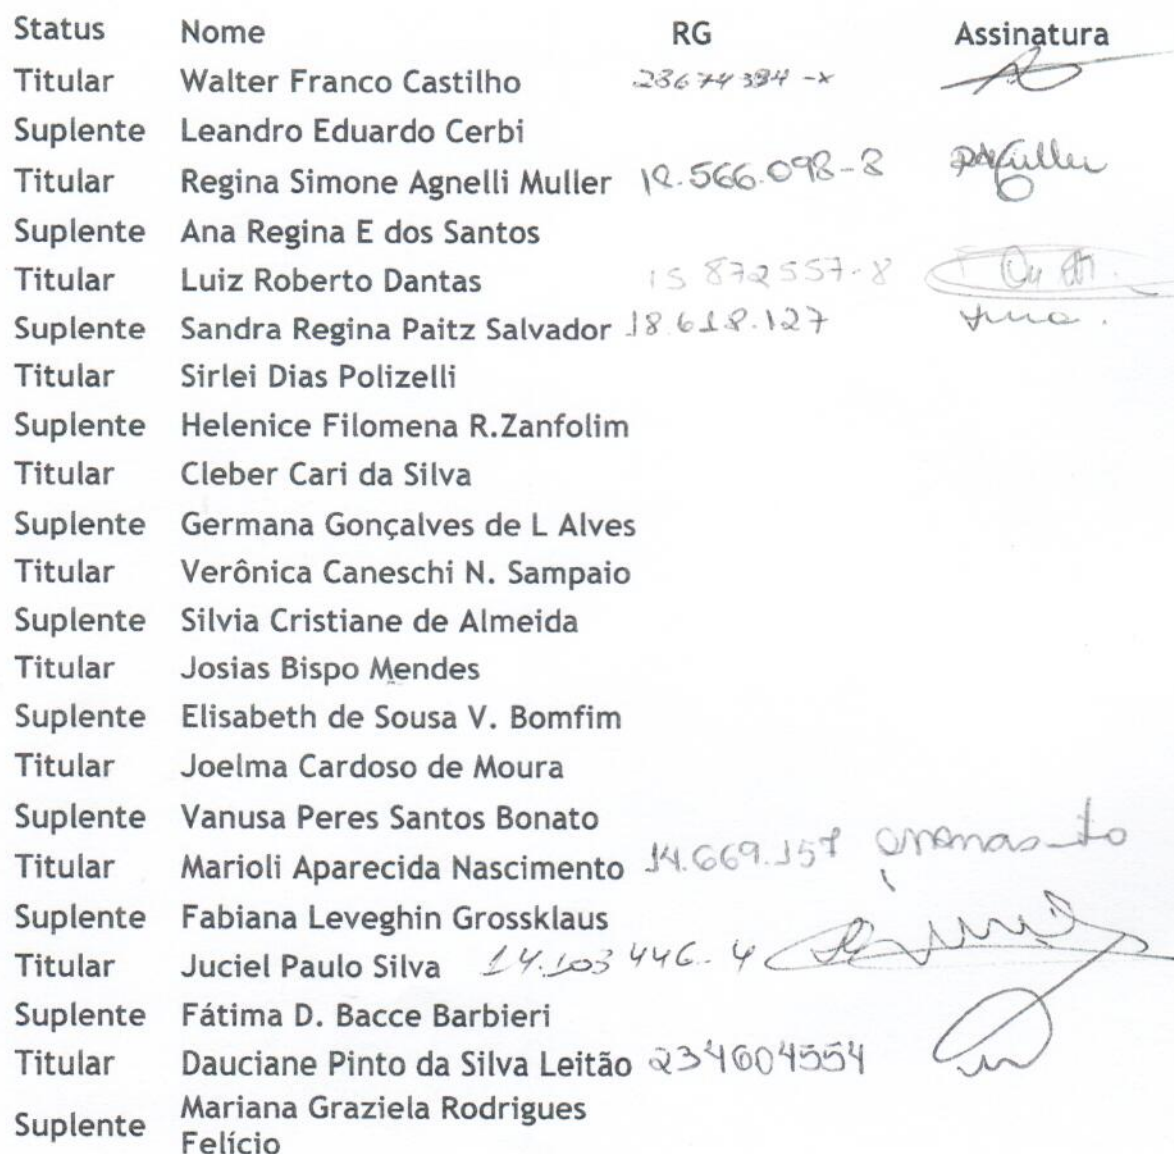 Status Nome RG Assinatura
Titular Walter Franco Castilho
Suplente Leandro Eduardo Cerbi
Titular Regina Simone Agnelli Muller 12.566.098-8
Suplente Ana Regina E dos Santos
Titular Luiz Roberto Dantas 15 872557-8
Suplente Sandra Regina Paitz Salvador 18.618.127
Titular Sirlei Dias Polizelli
Suplente Helenice Filomena R.Zanfolim
Titular Cleber Cari da Silva
Suplente Germana Gonçalves de L Alves
Titular Verônica Caneschi N. Sampaio
Suplente Silvia Cristiane de Almeida
Titular Josias Bispo Mendes
Suplente Elisabeth de Sousa V. Bomfim
Titular Joelma Cardoso de Moura
Suplente Vanusa Peres Santos Bonato
Titular Marioli Aparecida Nascimento 14.669.157
Suplente Fabiana Leveghin Grossklaus
Titular Juciel Paulo Silva 14.103 446-4
Suplente Fátima D. Bacce Barbieri
Titular Dauciane Pinto da Silva Leitão 234604554
Suplente Mariana Graziela Rodrigues
Felício